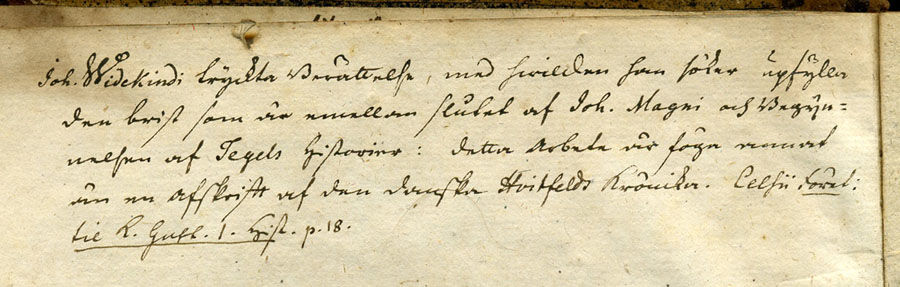 Joh. Widekindi tryckta Berättelse, med hwilcken han söker upfylla
den brist som är emellan slutet af Joh. Magni och Begyn=
nelsen af Tegels Historier: detta Arbete är föga annat
än en Afskrift af den danska Hvitfelds Krönika. Celsii Föret:
til K. Gust. 1. Hist. p. 18.